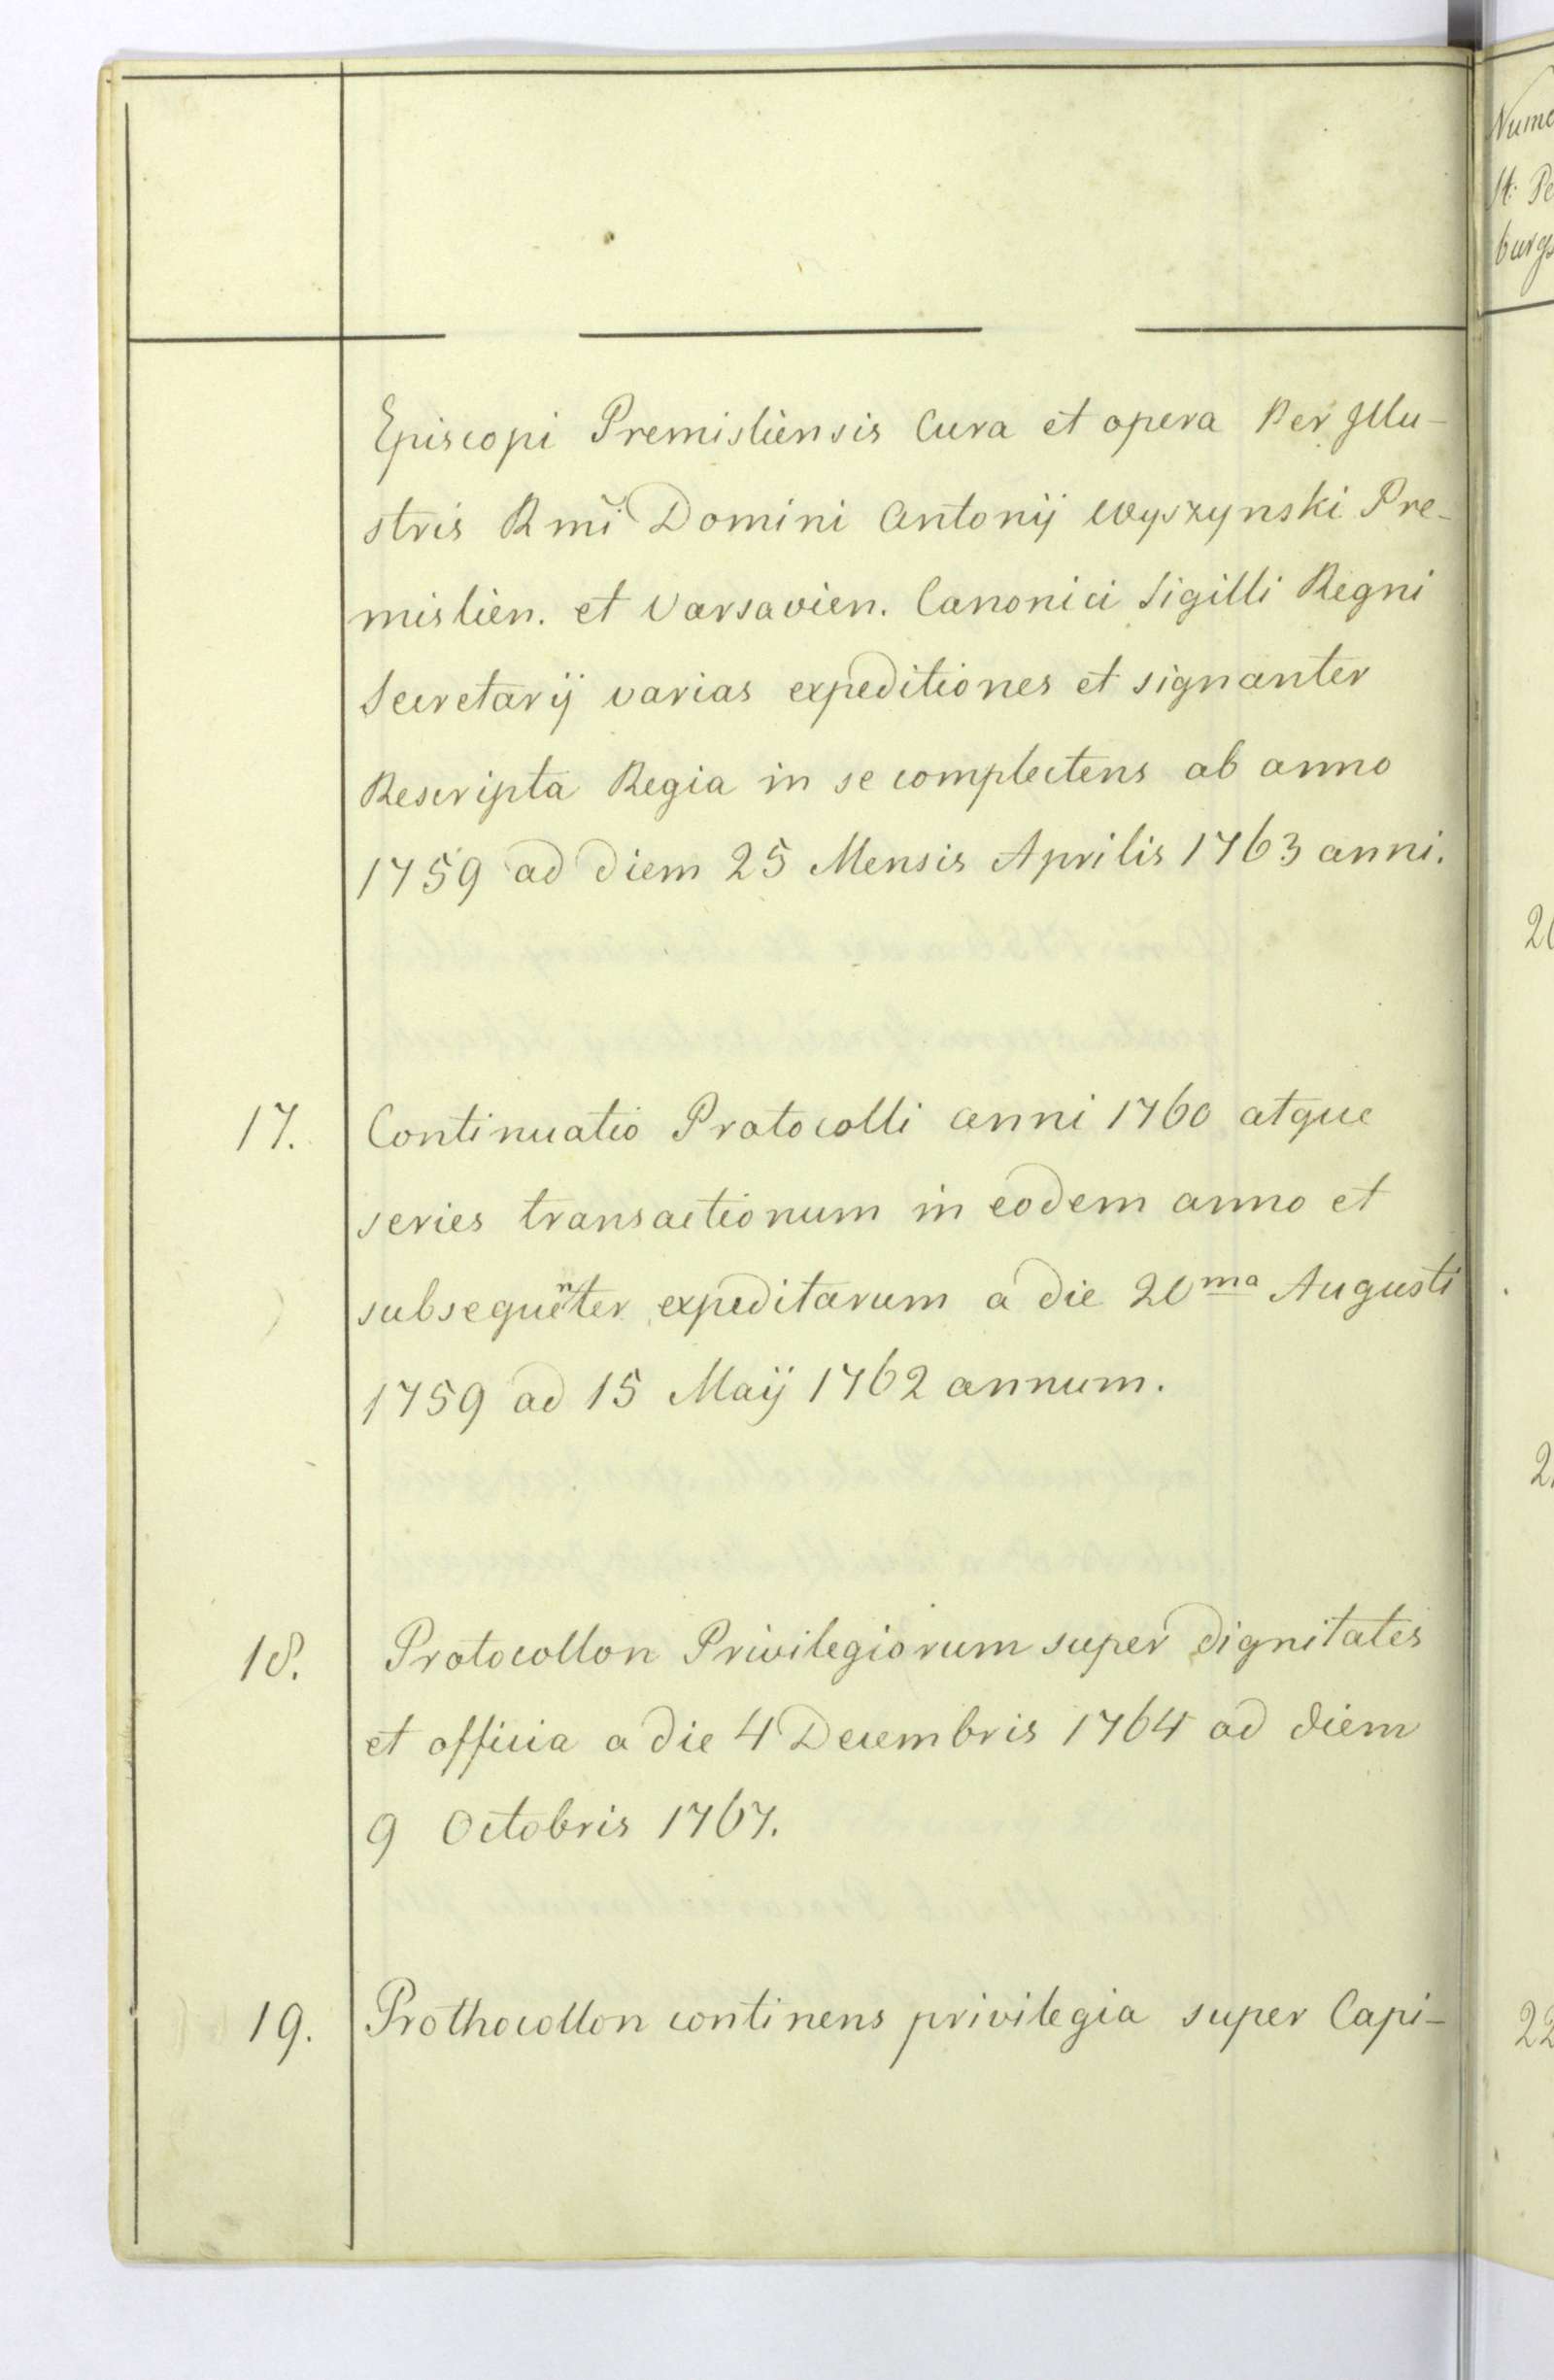 Episcopi Premisliensis Cura et opera Per Jllu-
stris Rmi Domini Antonij Wyszynski Pre-
mislien. et Varsavien. Canonici Sigilli Regni
Secretarij varias expeditiones et signanter
Rescripta Regia in se complectens ab anno
1759 ad diem 25 Mensis Aprilis 1763 anni.
17. Continuatio Protocolli anni 1760 atque
series transactionum in eodem anno et
subsequenter expeditarum a die 20ma Augusti
1759 ad 15 Maij 1762 annum.
18. Protocollon Privilegiorum super dignitates
et officia a die 4 Decembris 1764 ad diem
9 Octobris 1767.
19. Prothocollon continens privilegia super Capi-